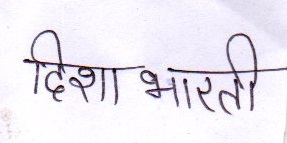 दिशा भारती